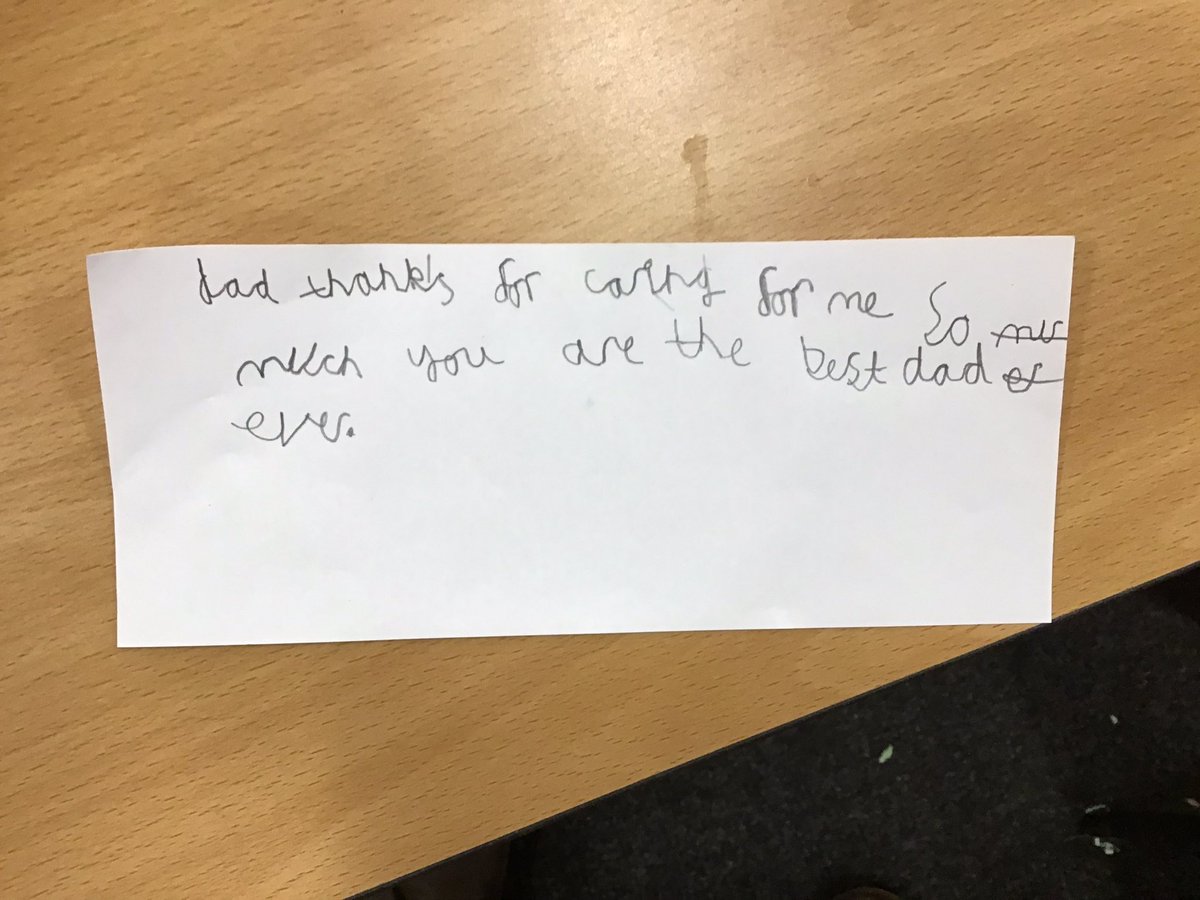 dad thanks for caring for me So
much you are the best dad
ever.